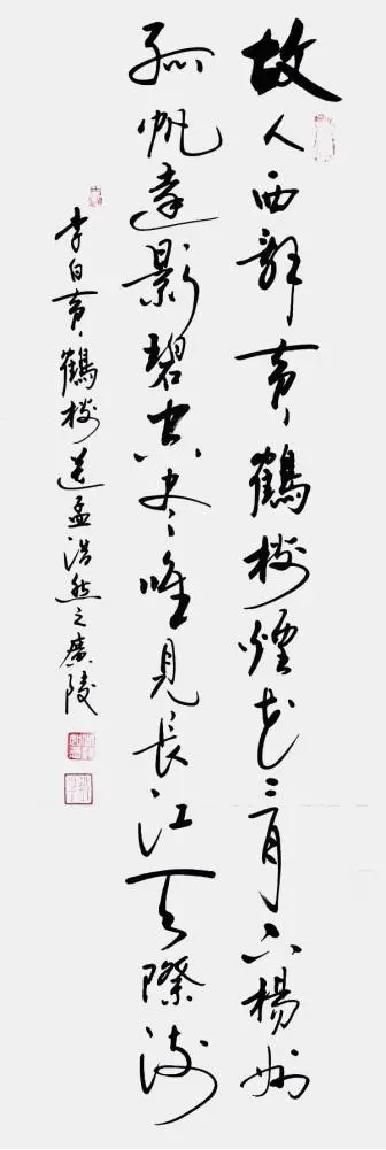 故人西辭黄鶴樓煙花三月下楊州
孤帆遠影碧空盡唯見長江天際流
李白黄鶴樓送孟浩然之廣陵